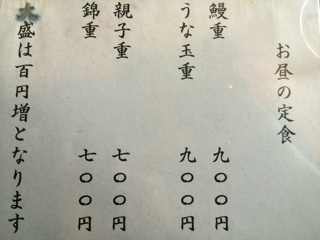 お昼の定食
鰻重 九〇〇円
うな玉重 九〇〇円
親子重 七〇〇円
錦重 七〇〇円
大盛は百円増となります